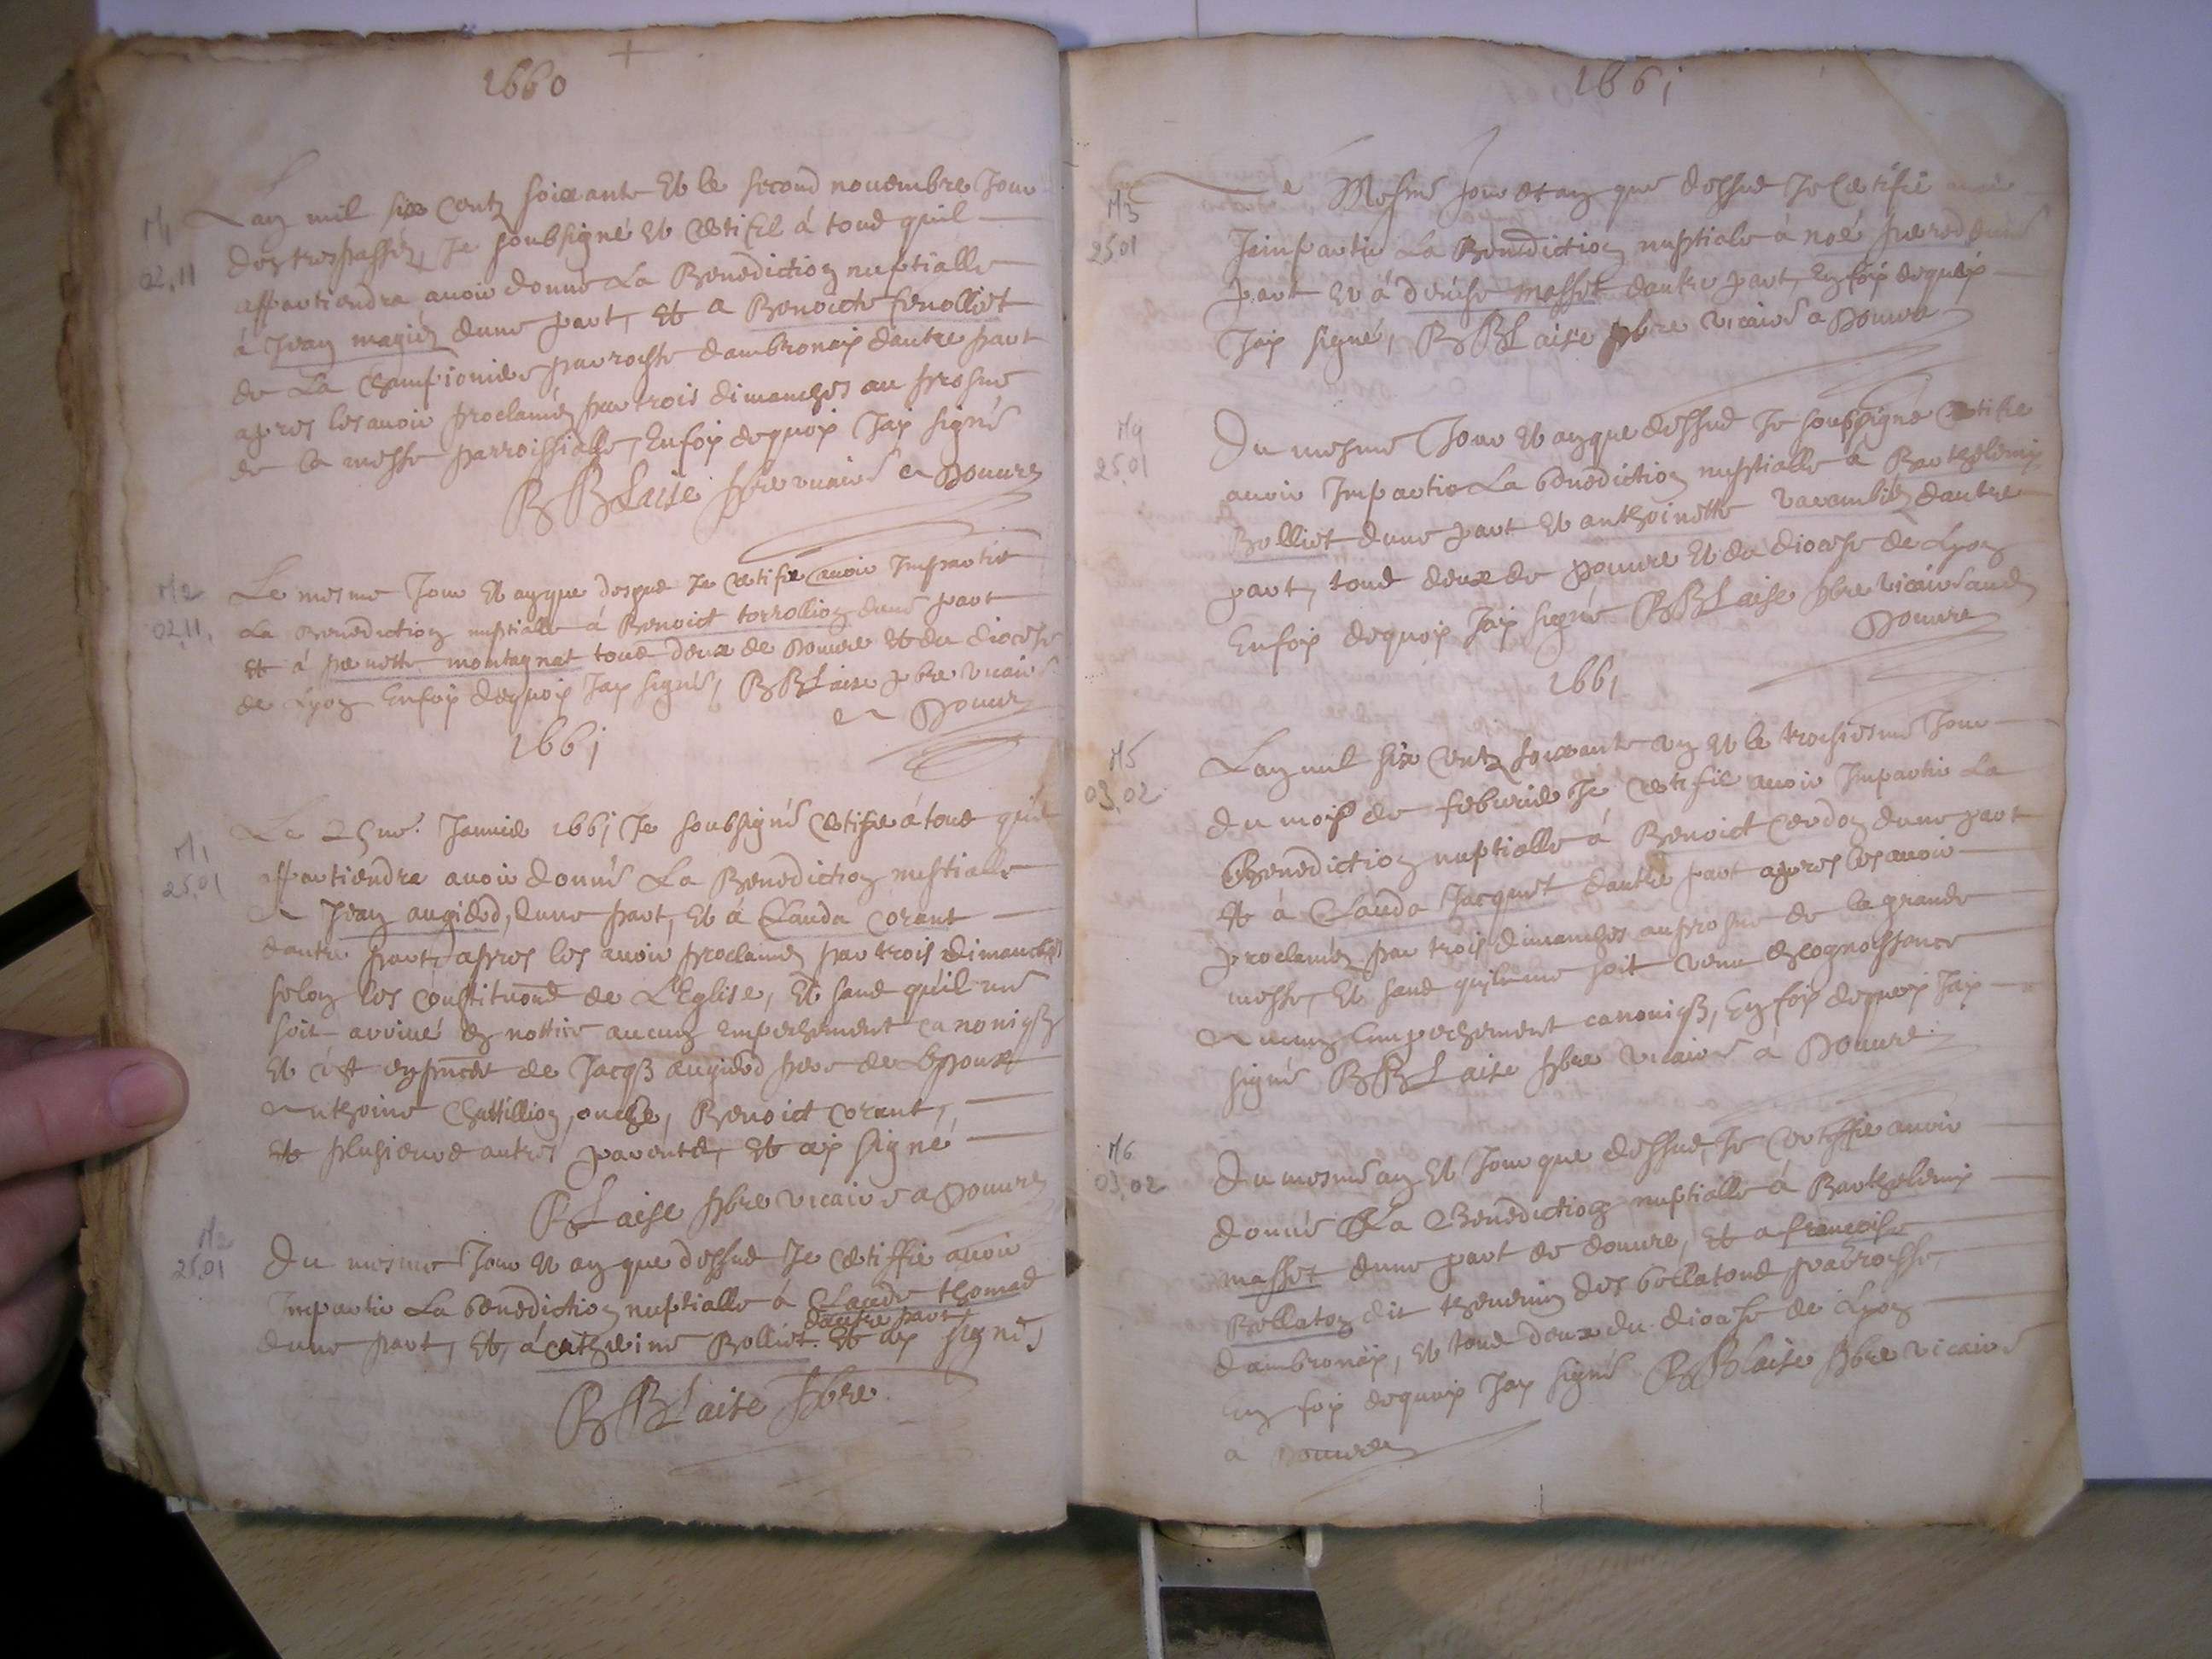 1660
M1
02.11
Lan mil six centz soixante et le second novembre Jour
des trespassez, Je soubsigné et certifie à tous quil
appartiendra avoir donné La Benediction nuptialle
à Jean magin dune part, et a Benoicte fenolliet
de La Championiere parroisse dambronaix dautre part
apres les avoir proclamez par trois dimanches au prosne
de la messe parroissialle, En foy dequoy Jay signé
B BLaise pbre vicaire a Douvre
M2
02.11.
Le mesme Jour et an que desus Je certifie avoir Impartie
La Benediction nuptialle à Benoict torrollion dune part
et à pernette montagnat tous deux de Douvre et du diocese
de Lyon En foy dequoy Jay signé, B BLaise pbre vicaire
a Douvre
1661
M1
25.01
Le 25me. Janvier 1661 Je soubsigné certifie à tous quil
appartiendra avoir donné La Benediction nuptialle
a Jean augierd, dune part, et à Clauda Corant
dautre part, apres les avoir proclamez par trois dimanches
selon les constituons de LEglise, et sans quil me
soit arrivé en nottice aucun empechement canoniq
et cest en pnce de Jacq augierd pere de Lepoux
Anthoine Chastillion, oncle, Benoict Corant,
et plusieurs autres parents, et ay signé
BLaise pbre vicaire a Douvre
M2
25.01
Du mesme Jour et an que dessus Je certiffie avoir
Impartie La benediction nuptialle à Claude thomas
dune part, et, à catherine Bolliet dautre part et ay signé,
B BLaise pbre
1661
M3
25.01
Le Mesme jour et an que dessus Je certifie avoir
Jimpartie La Benediction nuptiale à noé dune
part et à denise masset dautre part, En foy dequoy
Jay signé, B BLaise pbre vicaire a Douvre
M4
25.01
Du mesme Jour et an que dessus Je soubsigné certifie
avoir Impartie La benediction nuptialle à Barthelemy
Bolliet dune part et anthoinette varambien dautre
part, tous deux de Douvre et du diocese de Lyon
En foy dequoy Jay signé B BLaise pbre vicaire aud
Douvre
1661
M5
03.02
Lan mil six centz soixante un et le troisiesme Jour
du mois de febvrier Je certifie avoir Impartie La
Benediction nuptialle à Benoict Cerdon dune part
et à Clauda Jacquet dautre part apres les avoir
proclamez par trois dimanches au prosne de la grande
messe, et sans quil me soit venu en cognoissance
aucun Empechement canoniq, En foy dequoy Jay
signé B BLaise pbre vicaire à Douvre
M6
03.02
Du mesme an et Jour que dessus, Je certiffie avoir
donné La Benediction nuptialle à Barthelemy
masset dune part de douvre, et a francoise
Bellaton dit thevenin des bellatons parroisse
dambronay, et tous deux du diocese de Lyon
En foy dequoy Jay signé B BLaise pbre vicaire
a Douvre